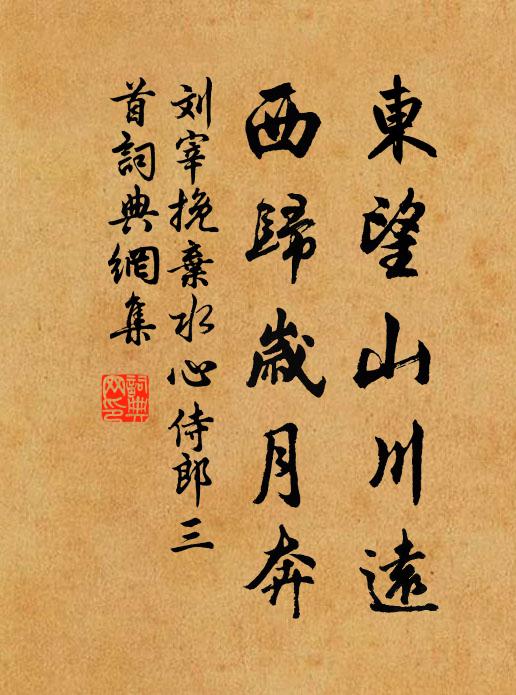 東望山川遠
西歸歲月奔
刘宰挽棄水心侍郎三
首詞典網集
詞典
网印